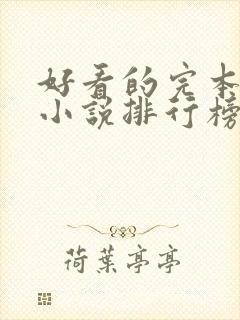 好看的完本
小説排行榜
荷葉亭亭